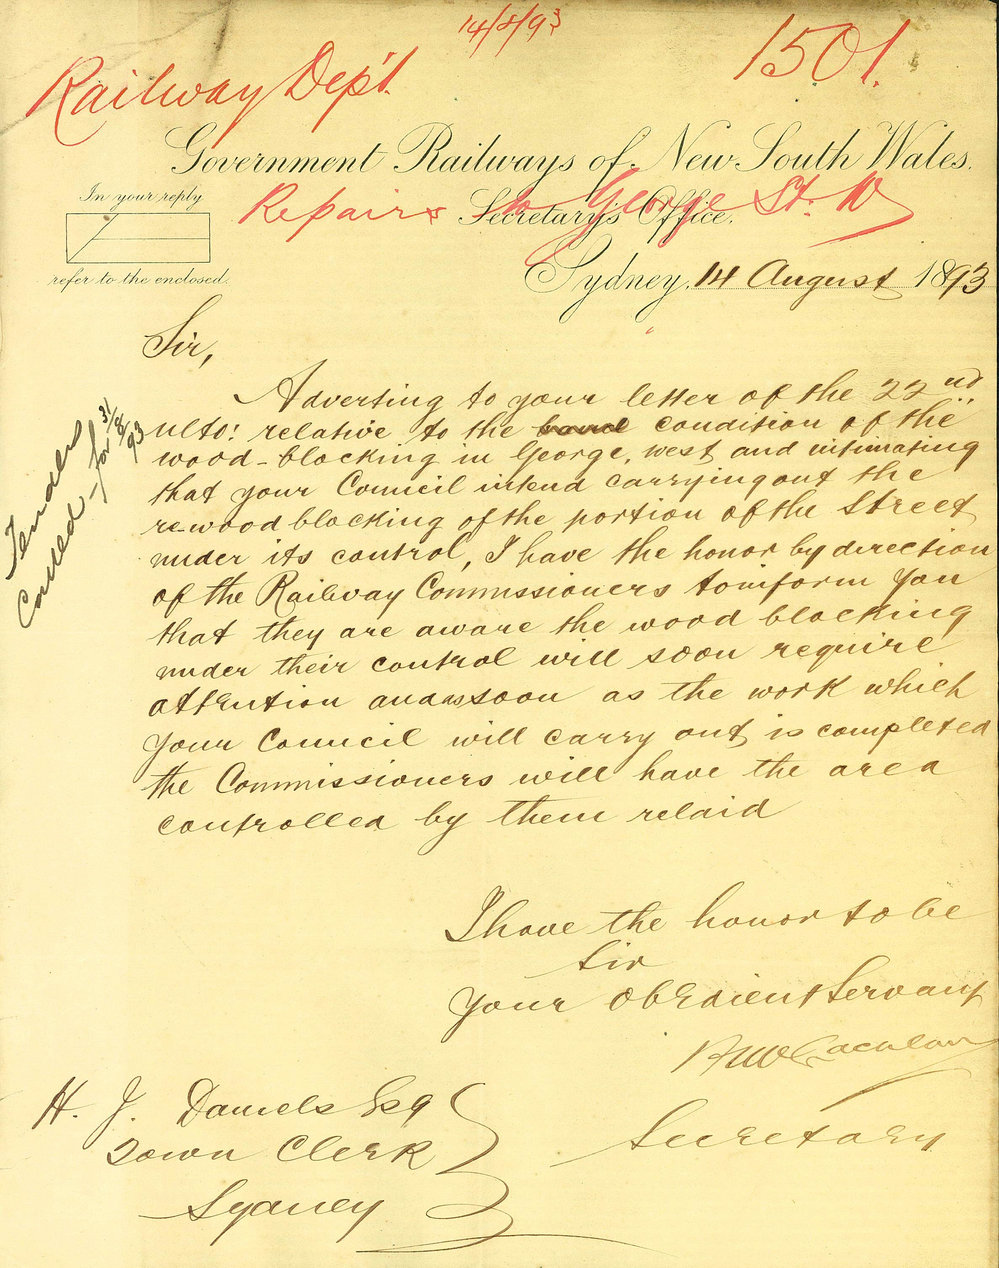 14/8/93
1501.
Railway Dep't.
Government Railways of New South Wales.
In your reply
refer to the enclosed.
Repairs to George St. W
Secretary's Office.
Sydney, 14 August 1893
Sir,
Adverting to your letter of the 22nd
ulto: relative to the condition of the
wood-blocking in George, West and intimating
that your Council intend carrying out the
re-wood blocking of the portion of the Street
under its control, I have the honor by direction
of the Railway Commissioners to inform you
that they are aware the wood blocking
under their control will soon require
attention and as soon as the work which
your Council will carry out is completed
the Commissioners will have the area
controlled by them relaid
Tenders
Called - for 31/8/93
I have the honor to be
Sir
Your Obedient Servant
H McLachlan
Secretary
H. J. Daniels Esq
Town Clerk
Sydney